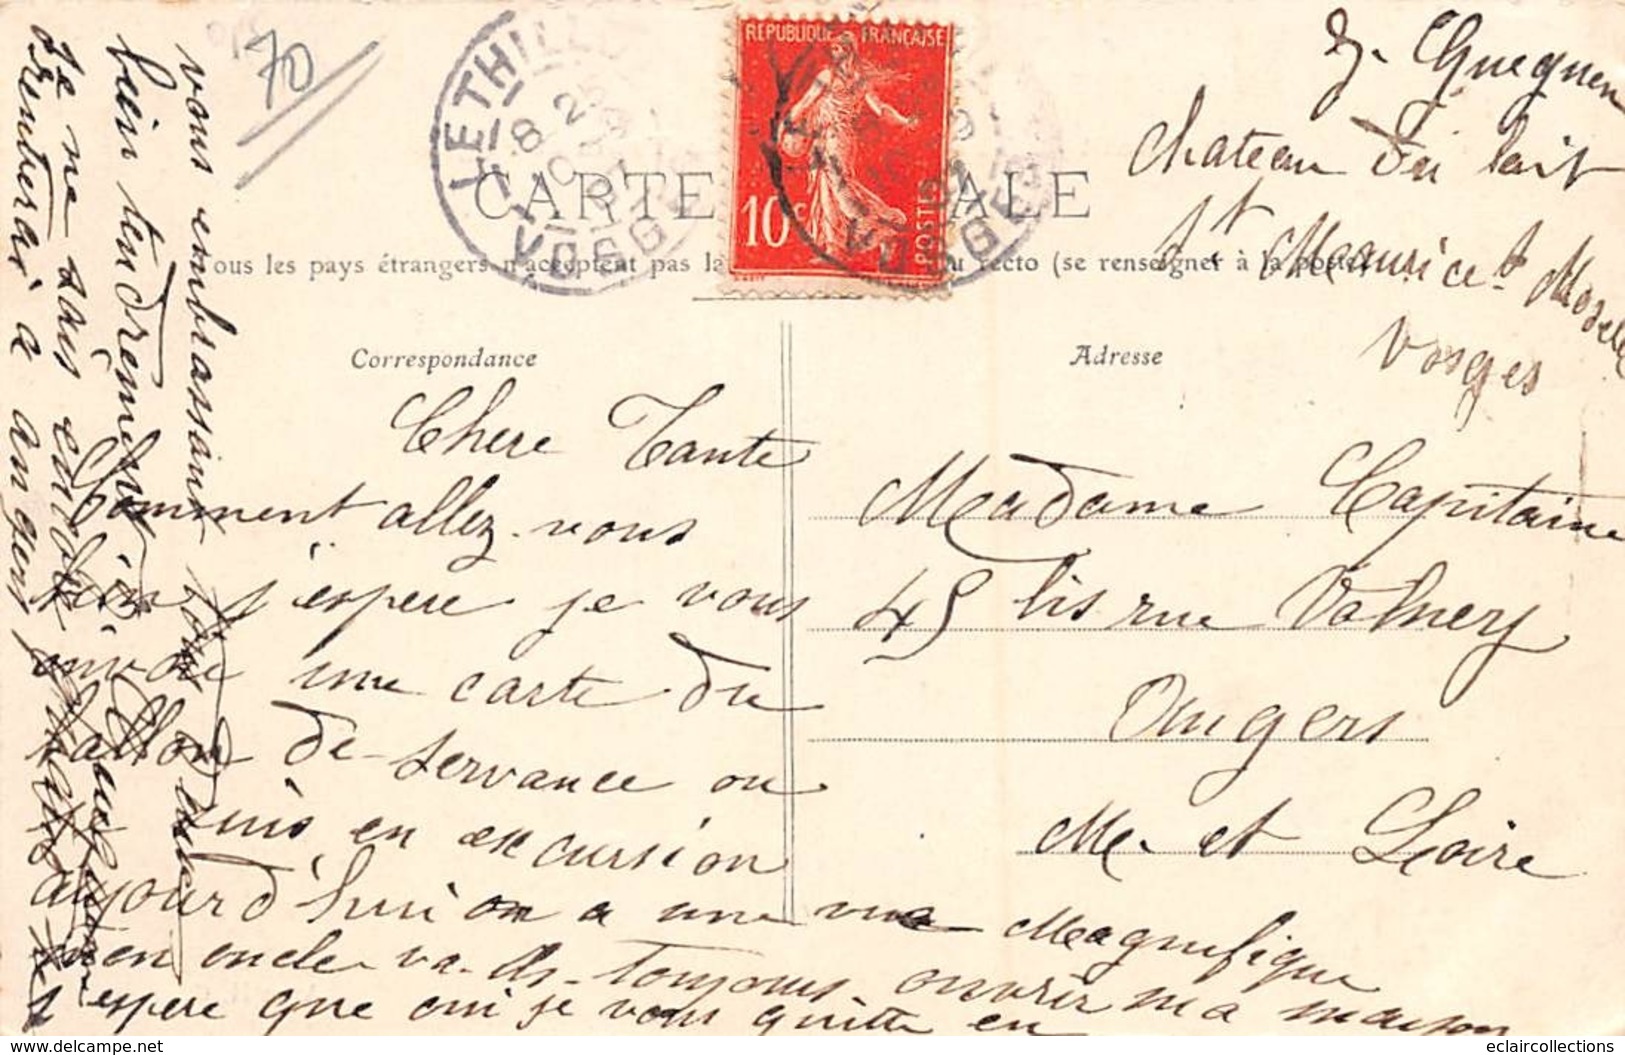 70
LE THILLOT
VOSGES
RÉPUBLIQUE FRANÇAISE
10c
POSTES
CARTE POSTALE
Tous les pays étrangers n'acceptent pas la au recto (se renseigner à la poste)
Correspondance
Adresse
Gueguen
Chateau du lait
St Maurice s. Moselle
Vosges
Chere Tante
Comment allez-vous
bien j'espere je vous
envoie une carte du
Ballon de servance ou
suis en excursion
aujourd'hui on a une vue Magnifique
mon oncle va-t-ils toujours ouvrir ma maison
j'espere que oui je vous quitte en
vous embrassant
bien tendrement
Je ne sais encore
rentrerai à Angers
Madame Capitaine
45 bis rue Volney
Angers
Me- et Loire
eclaircollections